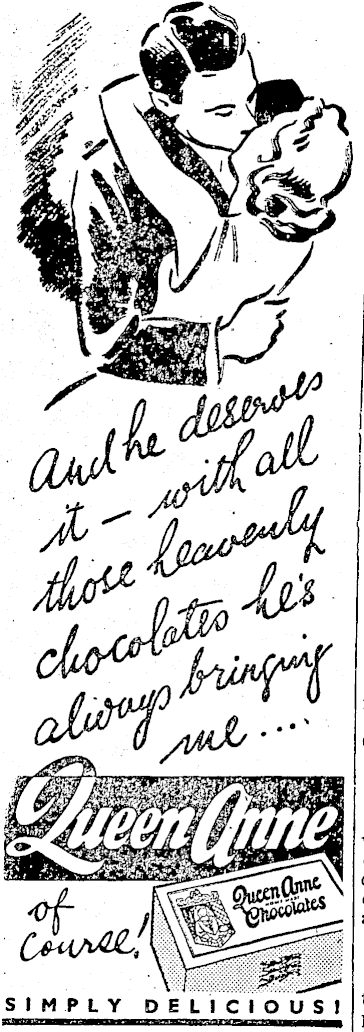 And he deserves
it — with all
those heavenly
chocolates he's
always bringing
me ....
Queen Anne
of
course!
Queen Anne
Chocolates
SIMPLY DELICIOUS!